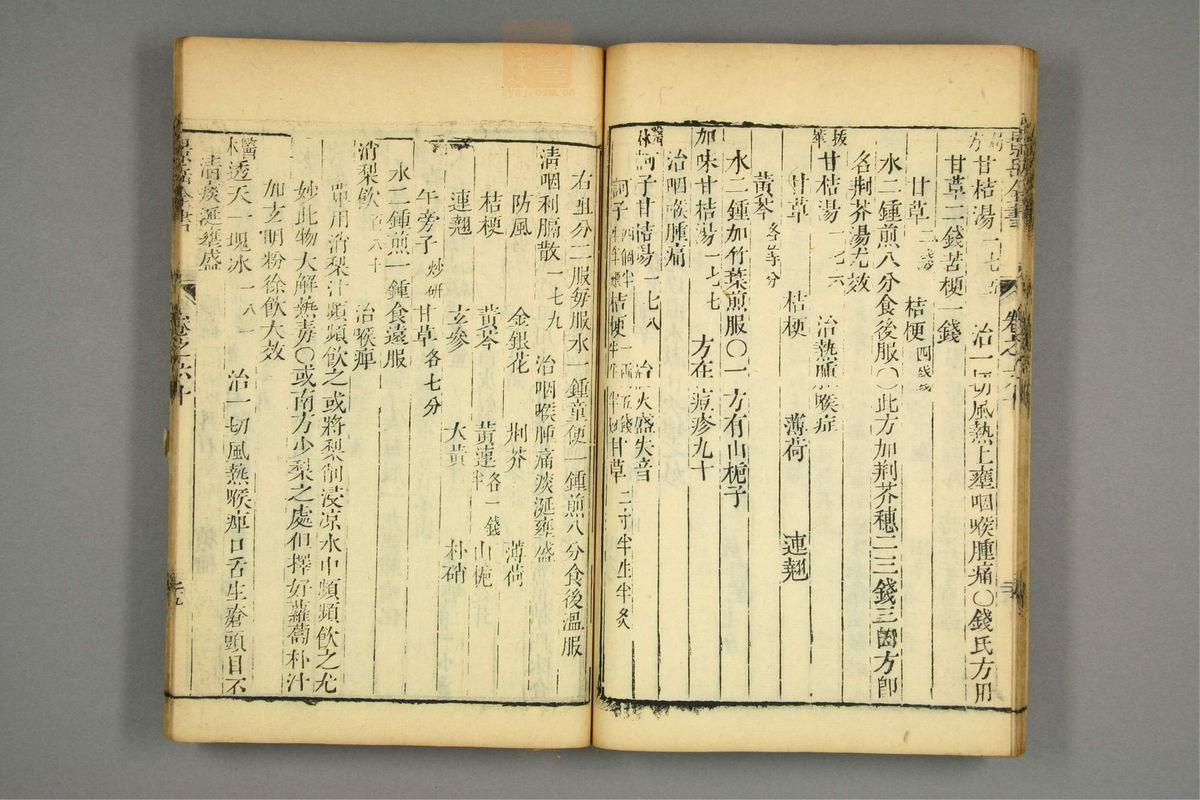 方 甘桔湯一七五 治一切風熱上壅咽喉腫痛〇錢氏方用
甘草二錢苦梗一錢
甘草二錢 桔梗四錢
水二鍾煎八分食後服〇此方加荆芥穗二三錢三因方即
名荆芥湯尤效
拔萃 甘桔湯一七六 治熱腫喉症
甘草 桔梗 薄荷 連翹
黃芩各等分
水二鍾加竹葉煎服〇一方有山梔子
加味甘桔湯一七七 方在痘疹九十
治咽喉腫痛
醫林 訶子甘桔湯一七八 治火盛失音
訶子四個半生半煨 桔梗一兩五錢半生半炒 甘草二寸半生半炙
右㕮分二服每服水一鍾童便一鍾煎八分食後溫服
清咽利膈散一七九 治咽喉腫痛痰涎壅盛
防風 金銀花 荆芥 薄荷
桔梗 黃芩 黃連各一錢半 山梔
連翹 玄參 大黃 朴硝
午旁子炒研 甘草各七分
水二鍾煎一鍾食遠服
消梨飲百八十 治喉痺
單用消梨汁頻頻飲之或將梨削浸凉水中頻頻飲之尤
妙此物大解熱毒〇或南方少梨之處但擇好蘿蔔杵汁
加玄明粉徐飲大效
醫林 透天一塊冰一八一 治一切風熱喉痺口舌生瘡頭目不
清痰涎壅盛
景岳全書 卷之六十